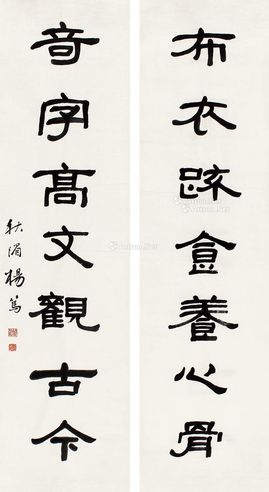 布衣踈食養心骨
奇字髙文觀古今
秋湄楊篤